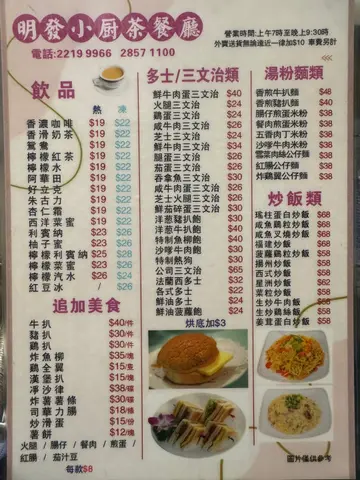 明發小厨茶餐廳
電話:2219 9966 2857 1100
營業時間:上午7時至晚上9:30時
外賣送貨無論遠近一律加$10 車費另計
飲品
熱 凍
香濃咖啡 $19 $22
香滑奶茶 $19 $22
鴛鴦 $19 $22
檸檬紅茶 $19 $22
檸檬水 $19 $22
阿華田 $19 $22
好立克 $19 $22
朱古力 $19 $22
杏仁霜 $19 $22
西洋菜蜜 $19 $22
利賓納 $23 $26
柚子蜜 $23 $26
檸檬利賓納 $25 $28
檸檬菜蜜 $23 $26
檸檬汽水 $26 $24
紅豆冰 / $26
追加美食
牛扒 $40/件
豬扒 $30/件
鷄扒 $30/件
炸魚柳 $35/塊
鷄全翼 $15/塊
漢堡扒 $15/塊
淨沙律 $38/碟
炸薯薯條 $30/碟
司華力腸 $18/條
炒滑蛋 $15/份
薯餅 $12/塊
火腿 / 腸仔 / 餐肉 / 煎蛋 /
紅腸 / 茄汁豆
每款$8
多士/三文治類
鮮牛肉蛋三文治 $40
火腿三文治 $24
鷄蛋三文治 $24
咸牛肉三文治 $26
芝士三文治 $24
鮮牛肉三文治 $34
腿蛋三文治 $26
茄蛋三文治 $26
吞拿魚三文治 $30
咸牛肉蛋三文治 $28
芝士火腿三文治 $28
鮮茄碎蛋三文治 $30
洋葱豬扒飽 $40
洋葱牛扒飽 $40
特制魚柳飽 $40
沙嗲牛肉飽 $30
特制熱狗 $30
公司三文治 $65
法蘭西多士 $32
各式多士 $22
鮮油多士 $24
鮮油菠蘿飽 $24
烘底加$3
湯粉麵類
香煎牛扒麵 $48
香煎豬扒麵 $40
腸仔煎蛋米粉 $38
餐肉煎蛋米粉 $38
五香肉丁米粉 $38
沙嗲牛肉米粉 $38
雪菜肉絲公仔麵 $38
紅腸煎蛋公仔麵 $38
炸鷄翼公仔麵 $38
炒飯類
瑤柱蛋白炒飯 $68
咸魚鷄粒炒飯 $68
咸魚叉燒炒飯 $58
福建炒飯 $68
菠蘿鷄粒炒飯 $58
揚州炒飯 $58
西式炒飯 $58
星洲炒飯 $58
菜粒炒飯 $58
生炒牛肉飯 $58
生炒鷄絲飯 $58
姜茸蛋白炒飯 $58
圖片僅供參考